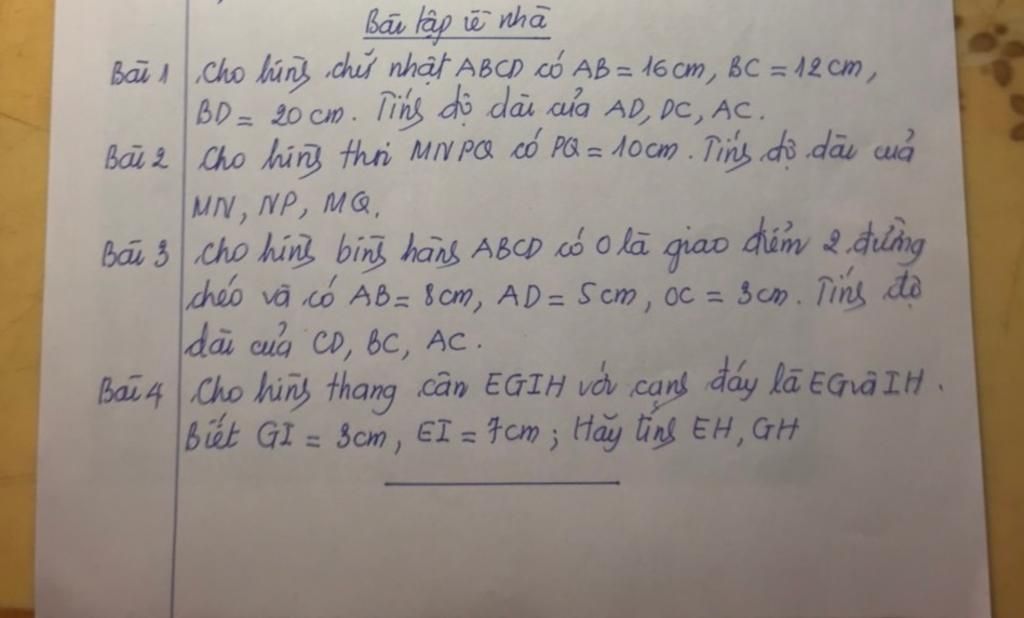 Bài tập về nhà
Bài 1 Cho hình chữ nhật ABCD có AB = 16cm, BC = 12cm,
BD = 20cm. Tính độ dài của AD, DC, AC.
Bài 2 Cho hình thoi MNPQ có PQ = 10cm. Tính độ dài của
MN, NP, MQ.
Bài 3 Cho hình bình hành ABCD có O là giao điểm 2 đường
chéo và có AB = 8cm, AD = 5cm, OC = 3cm. Tính độ
dài của CD, BC, AC.
Bài 4 Cho hình thang cân EGIH với cạnh đáy là EG và IH.
Biết GI = 3cm, EI = 7cm; Hãy tính EH, GH